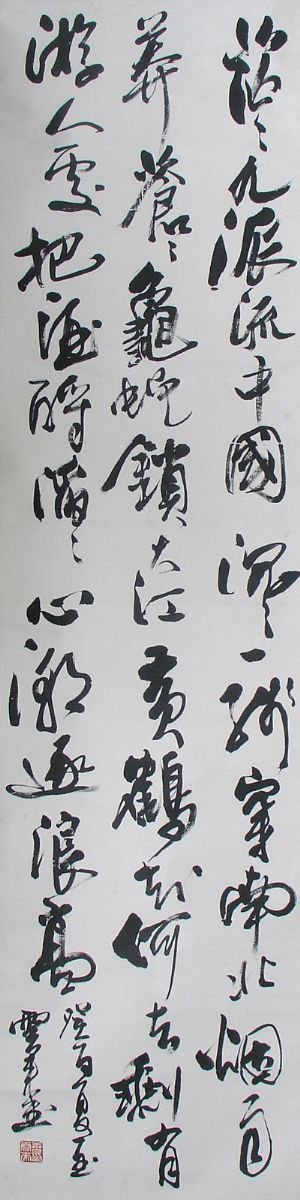 茫〻九派流中國沉〻一線穿南北烟雨
莽蒼〻龜蛇鎖大江黃鶴知何去剩有
游人處把酒酹滔〻心潮逐浪高
癸酉夏至